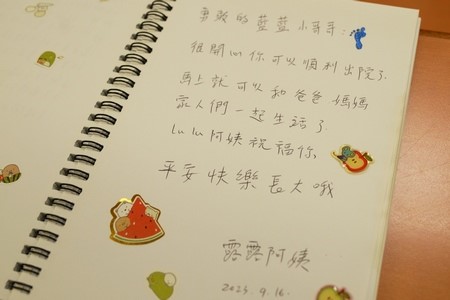 勇敢的藍藍小哥哥:
很開心你可以順利出院了
馬上就可以和爸爸媽媽
家人們一起生活了
Lulu阿姨祝福你,
平安快樂長大哦
露露阿姨
2023.9.16.